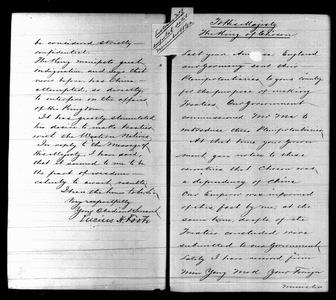 be considered strictly
confidential.
The King manifests great
indignation and says that
never before has China
attempted, so directly,
to interfere in the affairs
of his Kingdom.
It has greatly stimulated
his desire to make treaties
with the Western Nations.
In reply to the Message of
His Majesty, I have said,
that it seemed to me to be
the part of wisdom
calmly to await results,
I have the honor to be,
Very respectfully
Your Obedient Servant
Lucius H. Foote
To His Majesty
The King of Chosen
Last year, America, England
and Germany sent their
Plenipotentiaries, to your country
for the purpose of making
Treaties. Our Government
commissioned Mr Ma to
introduce these Plenipotentiaries.
At that time your Govern
ment gave notice to these
countries that Chosen was
a dependency of China
Our Emperor was informed
of this fact by me, at the
same time, copies of the
Treaties concluded were
submitted to our Government.
Lately I have heard from
Min Yong Mok Your Foreign
Minister